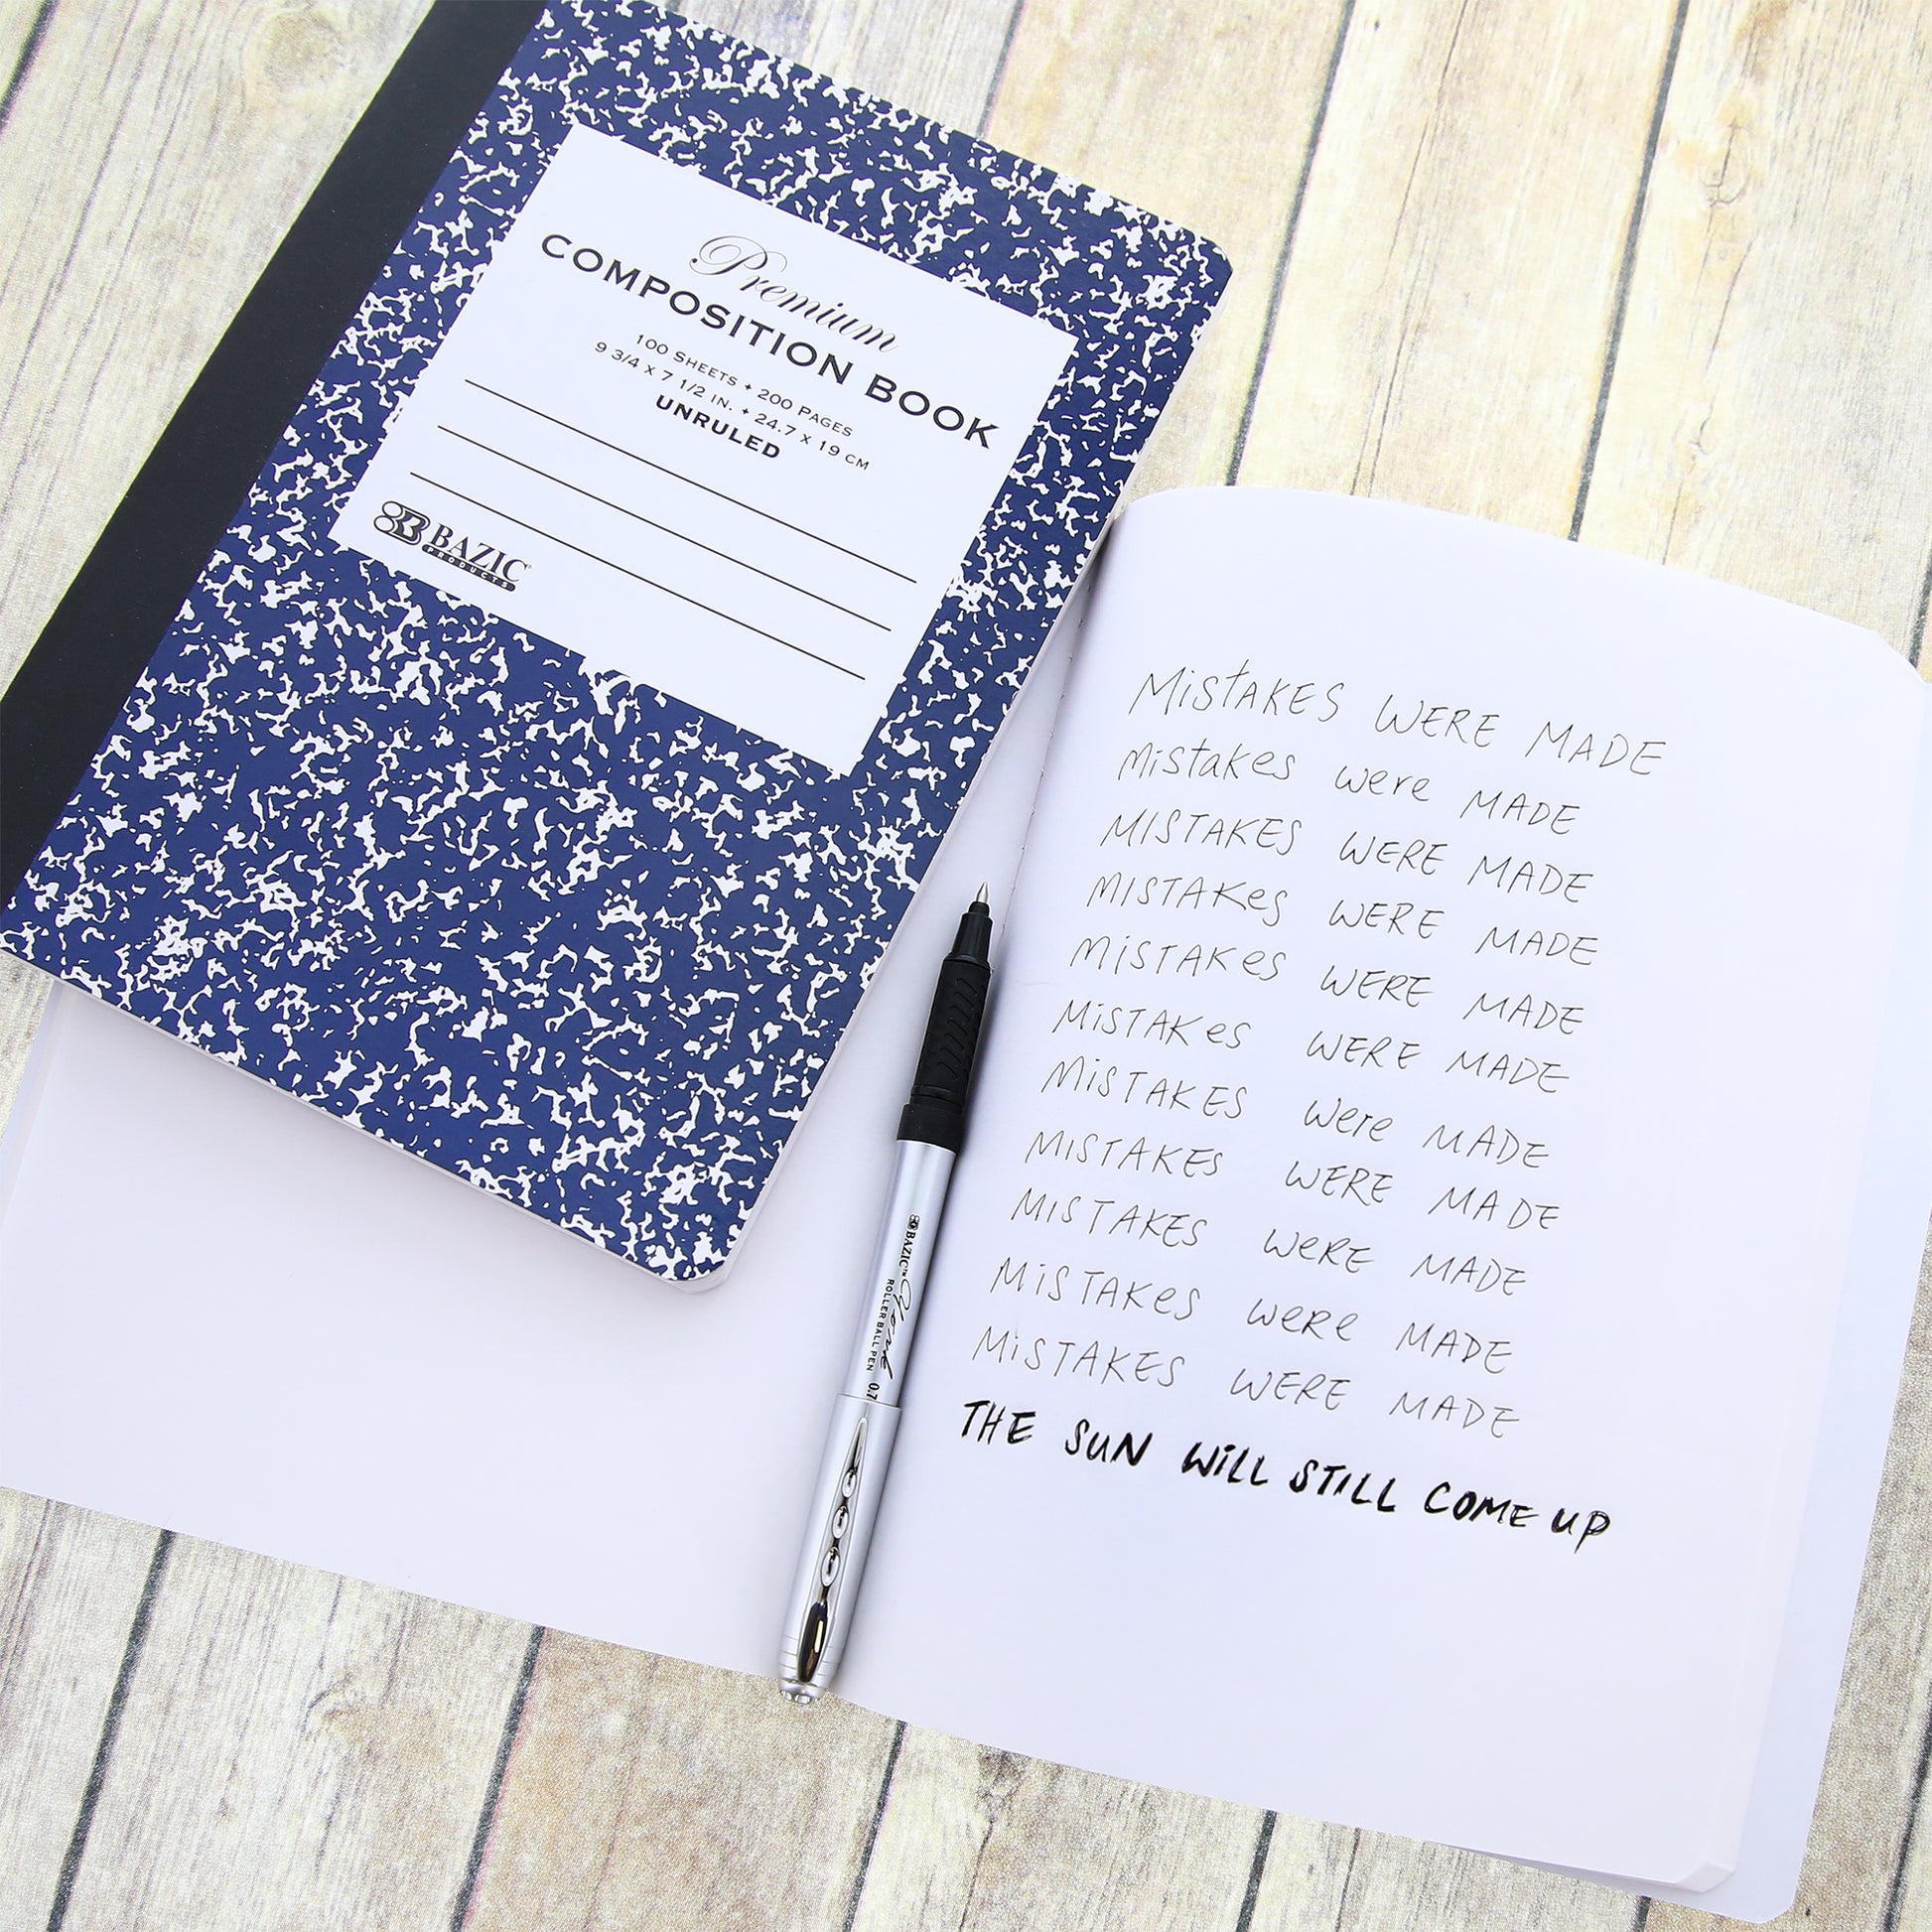 Premium
COMPOSITION BOOK
100 SHEETS • 200 PAGES
9 3/4 X 7 1/2 IN. • 24.7 X 19 CM
UNRULED
BAZIC
PRODUCTS
MiStAKES WERE MADE
Mistakes were MADE
MISTAKES WERE MADE
MISTAKeS WERE MADE
MiSTAKeS WERE MADE
MiSTAKeS WERE MADE
MiSTAKES Were MADE
MISTAKES WERE MADE
MiSTAKES WeRE MADE
MiSTAKeS WeRe MADE
MiSTAKES WERE MADE
THE SUN WiLL STILL COME UP
BAZIC™ York
ROLLER BALL PEN 0.7